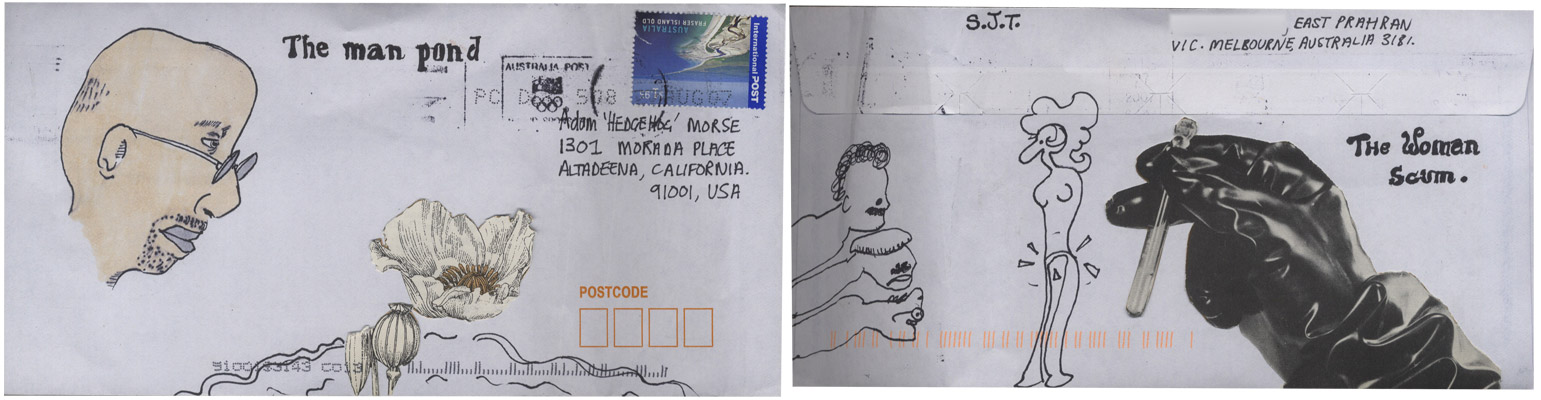 The man pond
AUSTRALIA POST
AUSTRALIA
FRASER ISLAND QLD
International POST
AUG07
Adam 'HEDGEHOG' MORSE
1301 MORADA PLACE
ALTADEENA, CALIFORNIA.
91001, USA
POSTCODE
S.J.T.
EAST PRAHRAN
VIC. MELBOURNE, AUSTRALIA 3181.
THE WOMAN
SCUM.